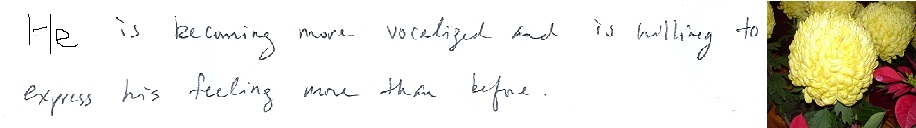 He is becoming more vocalized and is willing to
express his feeling more than before.